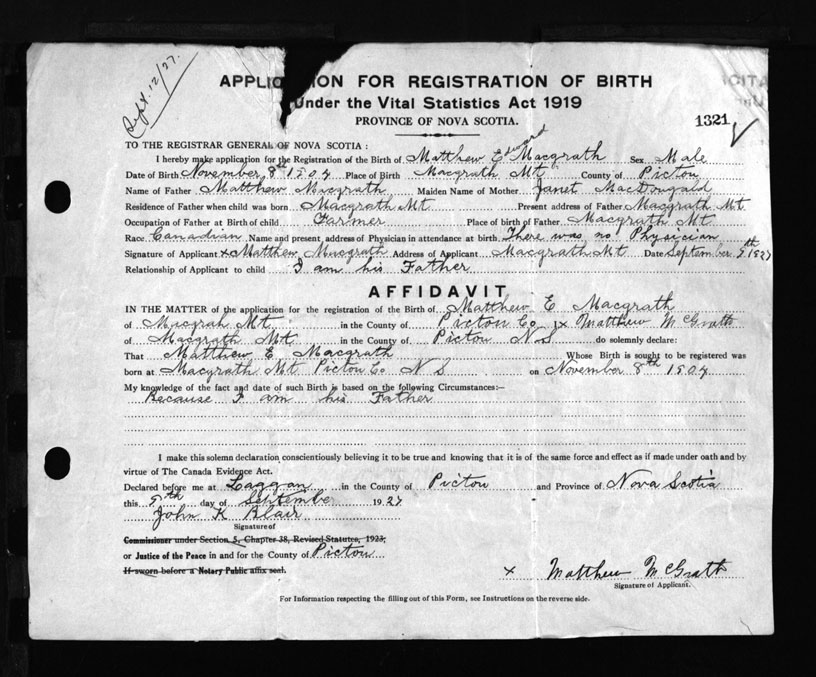 Sept. 12/27.
APPLIC ON FOR REGISTRATION OF BIRTH
Under the Vital Statistics Act 1919
PROVINCE OF NOVA SCOTIA.
1321
TO THE REGISTRAR GENERAL OF NOVA SCOTIA:
I hereby make application for the Registration of the Birth of Matthew Edward Macgrath Sex Male
Date of Birth November 8th 1904 Place of Birth Macgrath Mt County of Picton
Name of Father Matthew Macgrath Maiden Name of Mother Janet MacDougald
Residence of Father when child was born Macgrath Mt Present address of Father Macgrath Mt
Occupation of Father at Birth of child Farmer Place of birth of Father Macgrath Mt
Race Canadian Name and present address of Physician in attendance at birth There was no Physician
Signature of Applicant x Matthew Macgrath Address of Applicant Macgrath Mt Date September 9th 1927
Relationship of Applicant to child I am his Father
AFFIDAVIT
IN THE MATTER of the application for the registration of the Birth of Matthew E Macgrath
of Macgrah Mt. in the County of Picton Co I x Matthew McGrath
of Macgrath Mt. in the County of Picton N S do solemnly declare:
That Matthew E. Macgrath Whose Birth is sought to be registered was
born at Macgrath Mt Picton Co N S on November 8th 1904
My knowledge of the fact and date of such Birth is based on the following Circumstances:—
Because I am his Father
I make this solemn declaration conscientiously believing it to be true and knowing that it is of the same force and effect as if made under oath and by
virtue of The Canada Evidence Act.
Declared before me at Laggan in the County of Picton and Province of Nova Scotia
this 9th day of September 1927
John K Blair
Signature of
Commissioner under Section 5, Chapter 38, Revised Statutes, 1923;
or Justice of the Peace in and for the County of Picton
If sworn before a Notary Public affix seal.
x Matthew McGrath
Signature of Applicant.
For Information respecting the filling out of this Form, see Instructions on the reverse side.